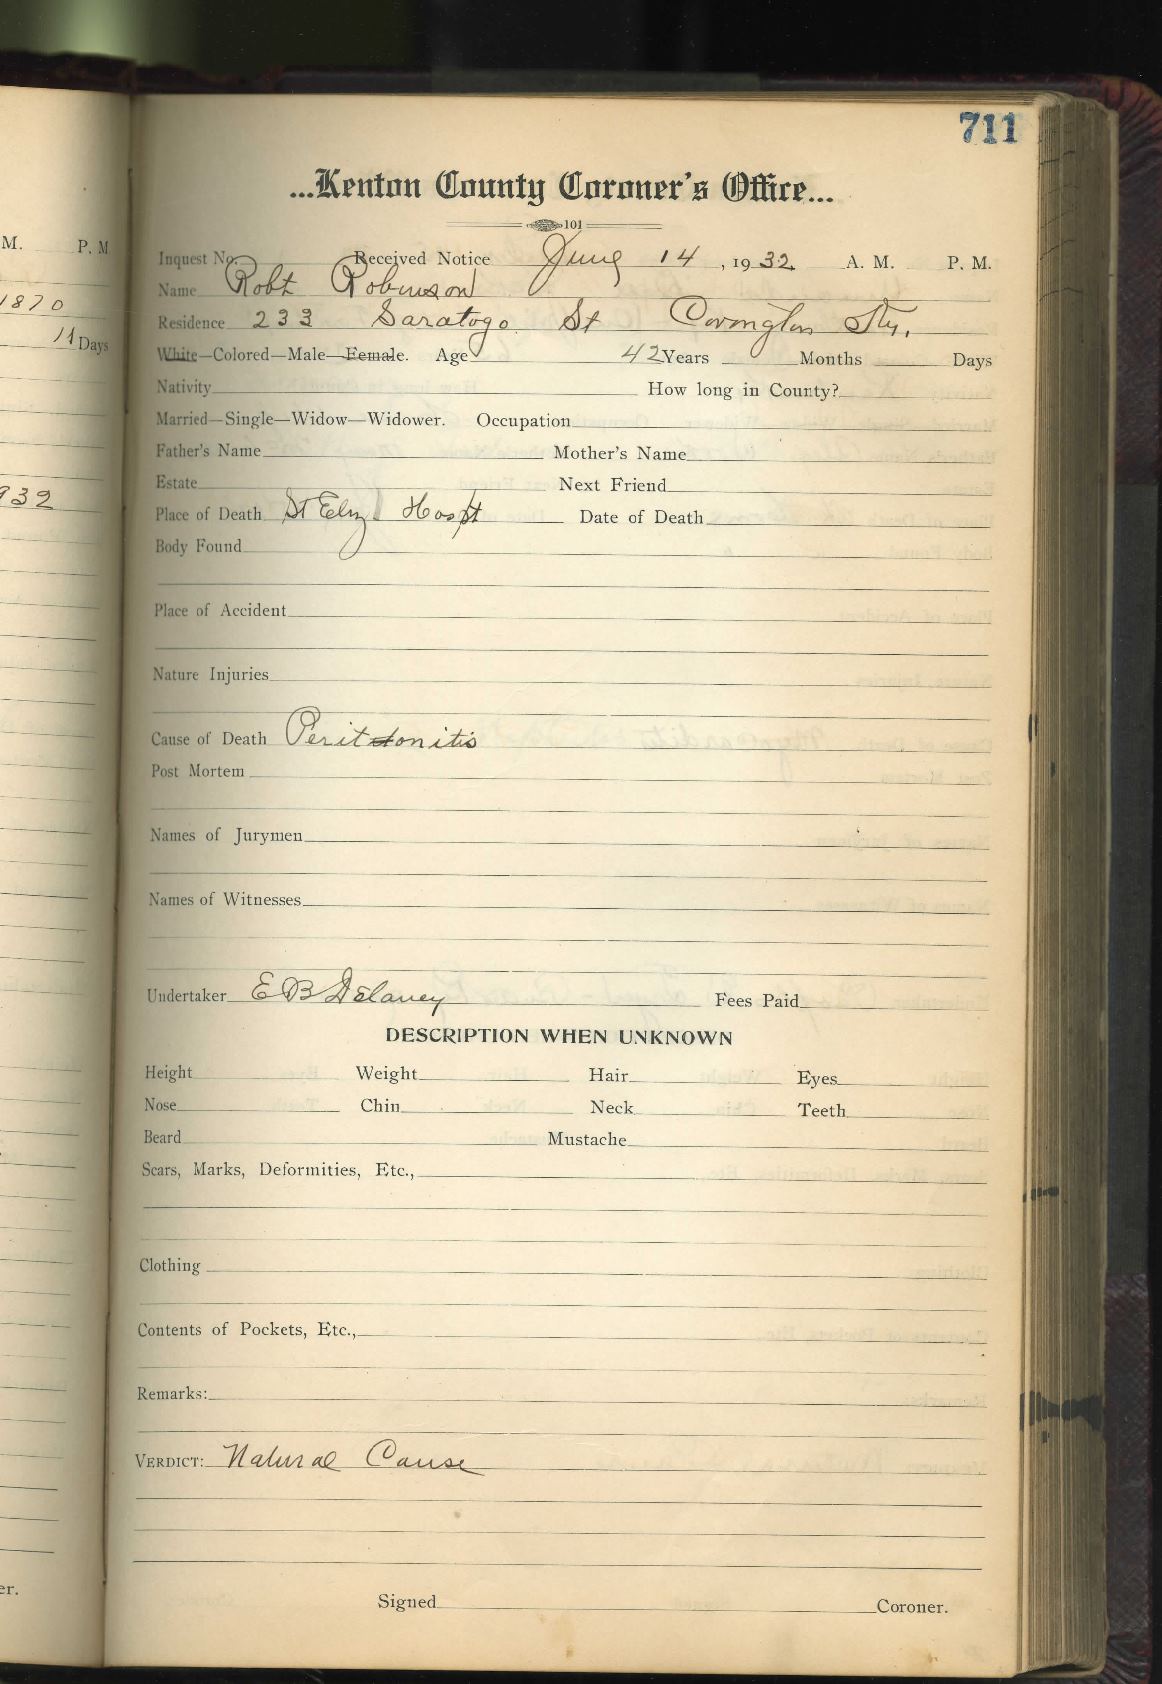 711
...Kenton County Coroner's Office...
101
Inquest No. Received Notice June 14, 1932 A. M. P. M.
Name Robt Robinson
Residence 233 Saratoga St Covington Ky.
White—Colored—Male—Female. Age 42 Years Months Days
Nativity How long in County?
Married—Single—Widow—Widower. Occupation
Father's Name Mother's Name
Estate Next Friend
Place of Death St Eliz Hospt Date of Death
Body Found
Place of Accident
Nature Injuries
Cause of Death Peritonitis
Post Mortem
Names of Jurymen
Names of Witnesses
Undertaker E B Delaney Fees Paid
DESCRIPTION WHEN UNKNOWN
Height Weight Hair Eyes
Nose Chin Neck Teeth
Beard Mustache
Scars, Marks, Deformities, Etc.,
Clothing
Contents of Pockets, Etc.,
Remarks:
VERDICT: Natural Cause
Signed Coroner.
M. P. M
1870
11 Days
932
er.